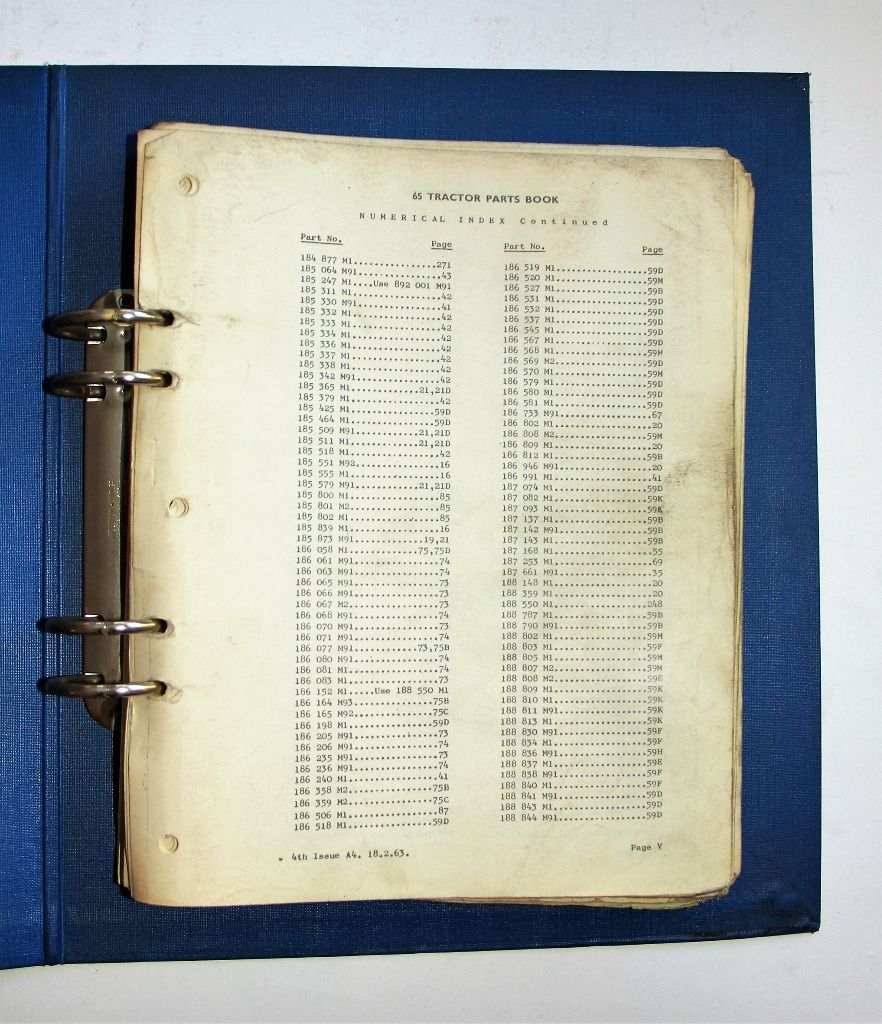 65 TRACTOR PARTS BOOK
NUMERICAL INDEX Continued
Part No. Page
184 877 M1................271
185 064 M91................43
185 247 M1....Use 892 001 M91
185 311 M1.................42
185 330 M91................41
185 332 M1.................42
185 333 M1.................42
185 334 M1.................42
185 336 M1.................42
185 337 M1.................42
185 338 M1.................42
185 342 M91................42
185 365 M1.............21,21D
185 379 M1.................42
185 425 M1................59D
185 464 M1................59D
185 509 M91............21,21D
185 511 M1.............21,21D
185 518 M1.................42
185 551 M92................16
185 555 M1.................16
185 579 M91............21,21D
185 800 M1.................85
185 801 M2.................85
185 802 M1.................85
185 839 M1.................16
185 873 M91.............19,21
186 058 M1.............75,75D
186 061 M91................74
186 063 M91................74
186 065 M91................73
186 066 M91................73
186 067 M2.................73
186 068 M91................74
186 070 M91................73
186 071 M91................74
186 077 M91............73,75B
186 080 M91................74
186 081 M1.................74
186 083 M1.................73
186 152 M1.....Use 188 550 M1
186 164 M93...............75B
186 165 M92...............75C
186 198 M1................59D
186 205 M91................73
186 206 M91................74
186 235 M91................73
186 236 M91................74
186 240 M1.................41
186 358 M2................75B
186 359 M2................75C
186 506 M1.................87
186 518 M1................59D
Part No. Page
186 519 M1..................59D
186 520 M1..................59M
186 527 M1..................59B
186 531 M1..................59D
186 532 M1..................59D
186 537 M1..................59D
186 545 M1..................59D
186 567 M1..................59D
186 568 M1..................59M
186 569 M2..................59D
186 570 M1..................59M
186 579 M1..................59D
186 580 M1..................59D
186 581 M1..................59D
186 733 M91..................67
186 802 M1...................20
186 808 M2..................59M
186 809 M1...................20
186 812 M1..................59B
186 946 M91..................20
186 991 M1...................41
187 074 M1..................59D
187 082 M1..................59K
187 093 M1..................59K
187 137 M1..................59B
187 142 M91.................59B
187 143 M1..................59B
187 168 M1...................55
187 253 M1...................69
187 661 M91..................35
188 148 M1...................20
188 359 M1...................20
188 550 M1..................248
188 787 M1..................59B
188 790 M91.................59B
188 802 M1..................59M
188 803 M1..................59F
188 805 M1..................59M
188 807 M2..................59M
188 808 M2..................59E
188 809 M1..................59K
188 810 M1..................59K
188 811 M91.................59K
188 813 M1..................59K
188 830 M91.................59F
188 834 M1..................59F
188 836 M91.................59H
188 837 M1..................59E
188 838 M91.................59F
188 840 M1..................59F
188 841 M91.................59D
188 843 M1..................59D
188 844 M91.................59D
4th Issue A4. 18.2.63.
Page V